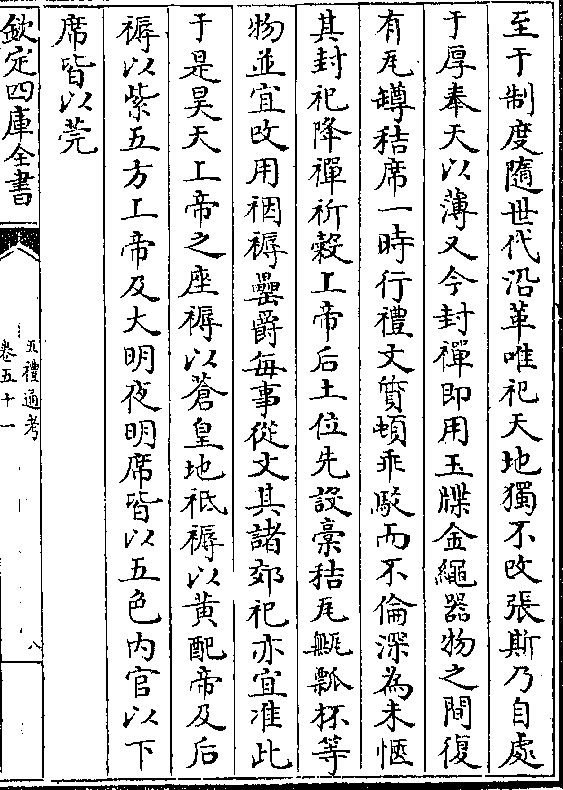 至于制度隨世代沿革唯祀天地獨不改張斯乃自處
于厚奉天以薄又今封禪即用玉牒金繩器物之間復
有瓦罇秸席一時行禮文質頓乖駁而不倫深為未愜
其封祀降禪祈穀上帝后土位先設藁秸瓦甒瓢杯等
物並宜改用裀褥罍爵每事從文其諸郊祀亦宜准此
于是昊天上帝之座褥以蒼皇地祇褥以黄配帝及后
褥以紫五方上帝及大明夜明席皆以五色内官以下
席皆以莞
欽定四庫全書
五禮通考
卷五十一
八